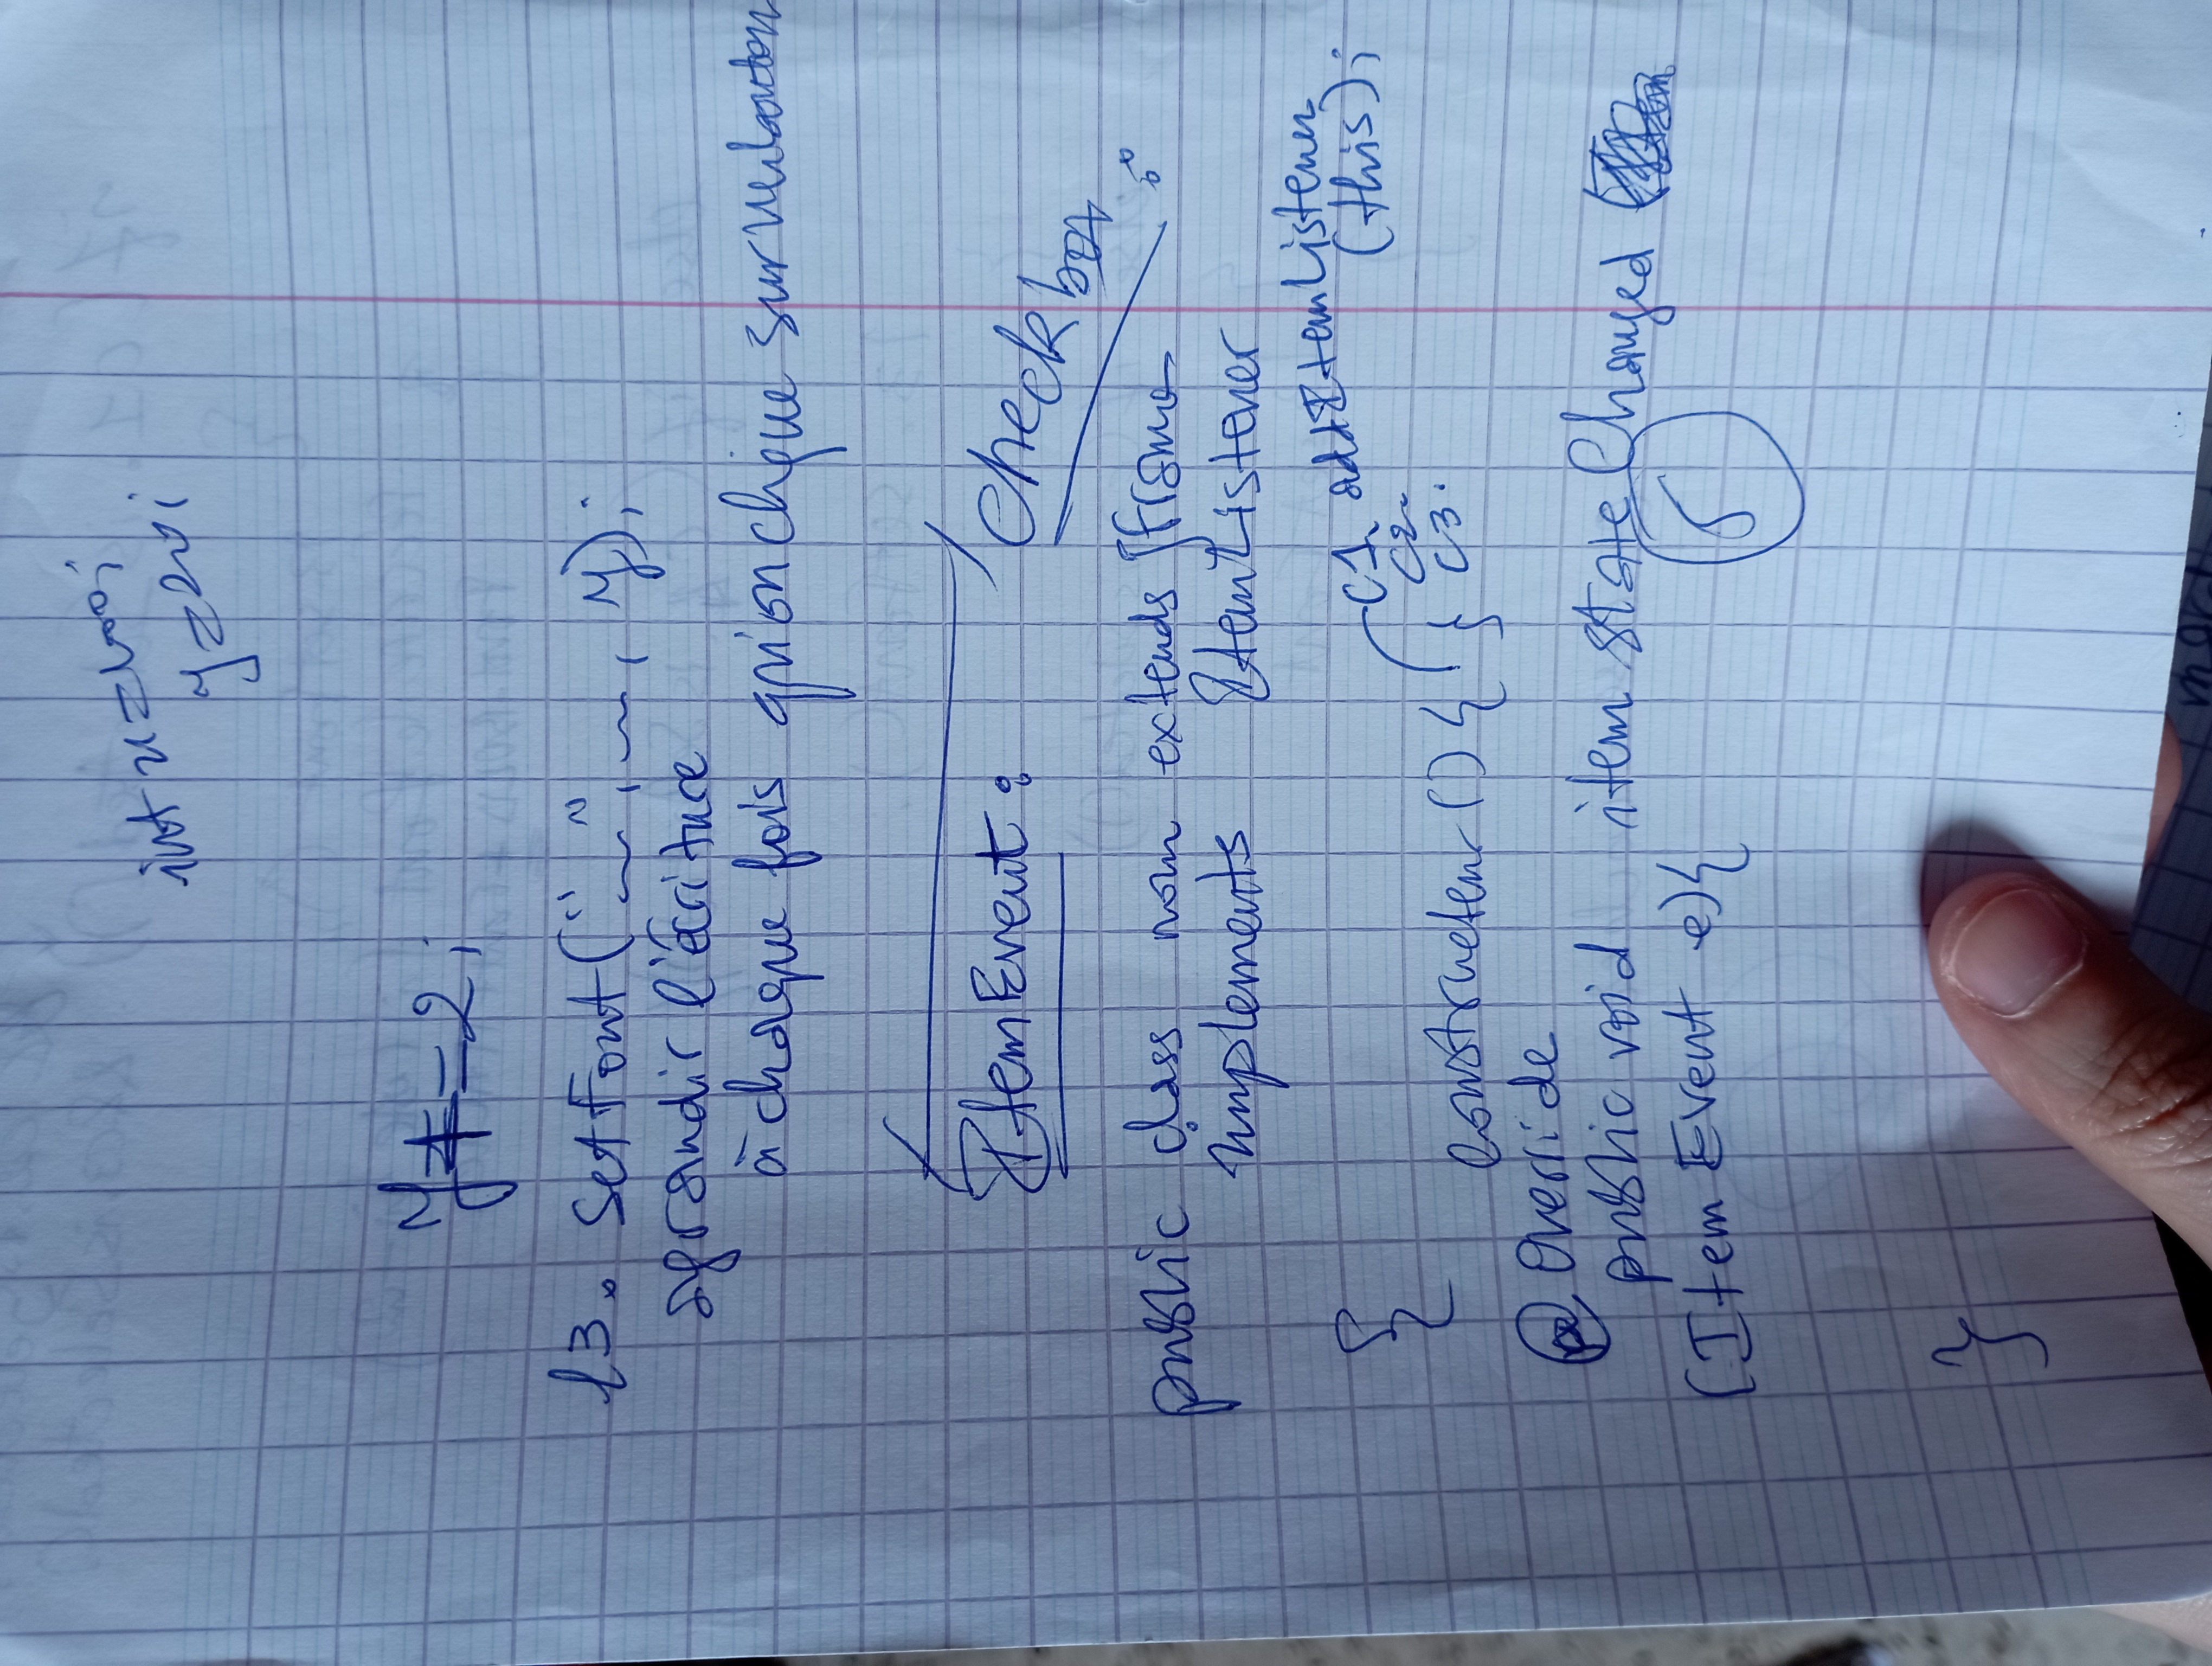 int x=100;
y=20;
y+=2;
l3. setFont("__", __, y);
agrandir l'écriture
à chaque fois qu'on clique sur un bouton
ItemEvent : Checkbox :
public class nom extends JFrame
implements ItemListener
{
c1. addItemListener
(this);
c2.
c3.
constructeur () { }
@Override
public void item stateChanged
(Item Event e){
}